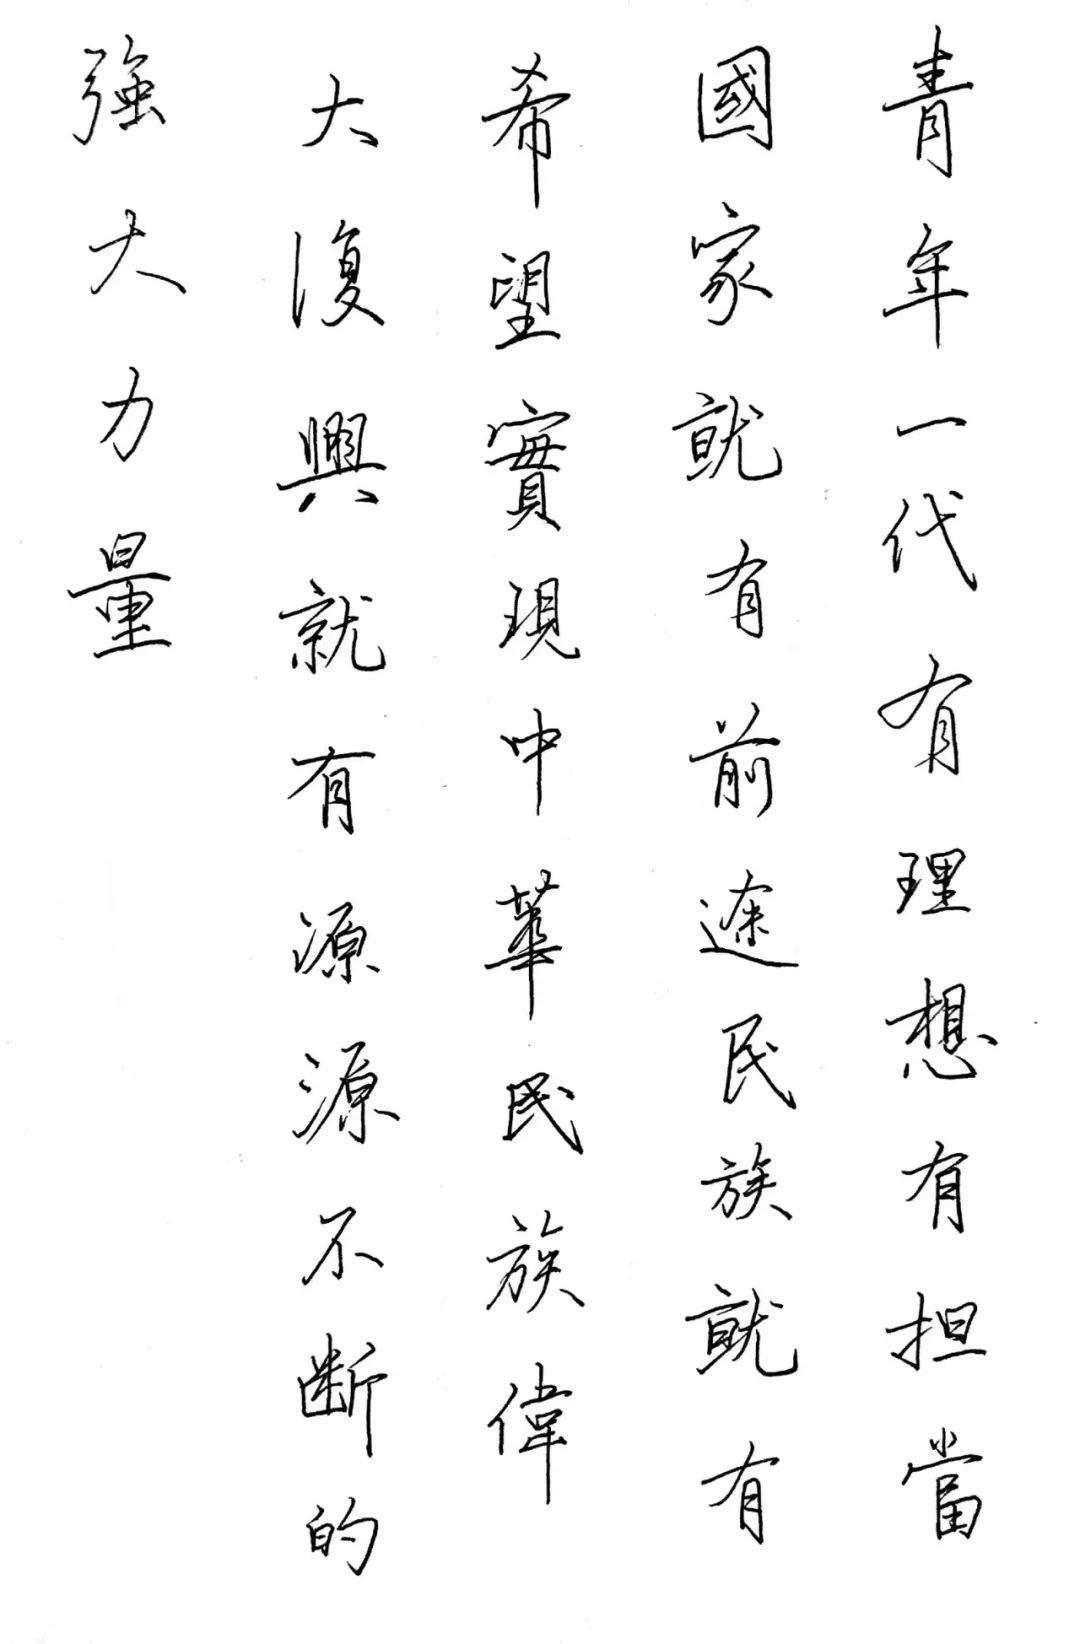 青年一代有理想有担當
國家就有前途民族就有
希望實現中華民族偉
大復興就有源源不斷的
強大力量